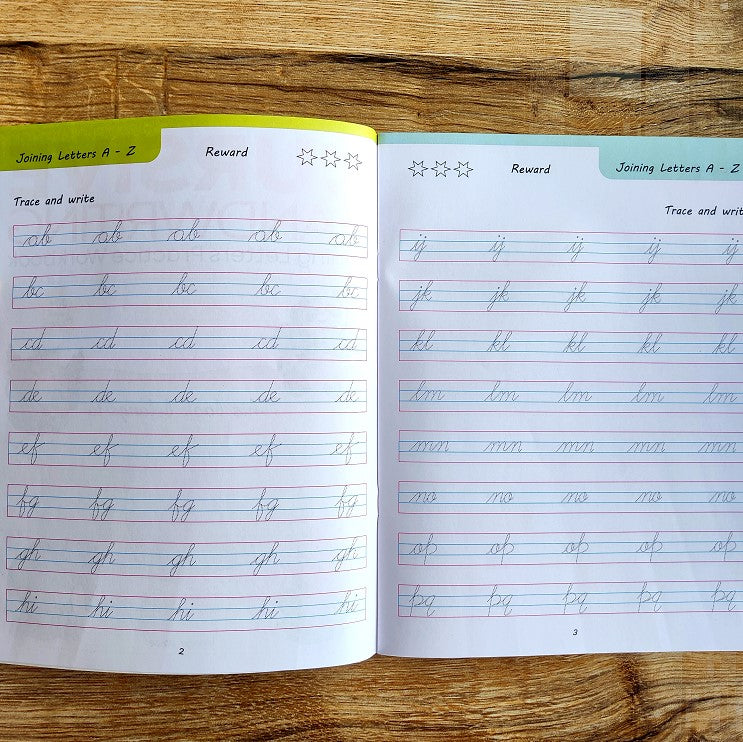 Joining Letters A - Z Reward
Trace and write
ab ab ab ab ab
bc bc bc bc bc
cd cd cd cd cd
de de de de de
ef ef ef ef ef
fg fg fg fg fg
gh gh gh gh gh
hi hi hi hi hi
2
Reward Joining Letters A - Z
Trace and writ
ij ij ij ij ij
jk jk jk jk jk
kl kl kl kl kl
lm lm lm lm lm
mn mn mn mn mn
no no no no no
op op op op op
pq pq pq pq pq
3